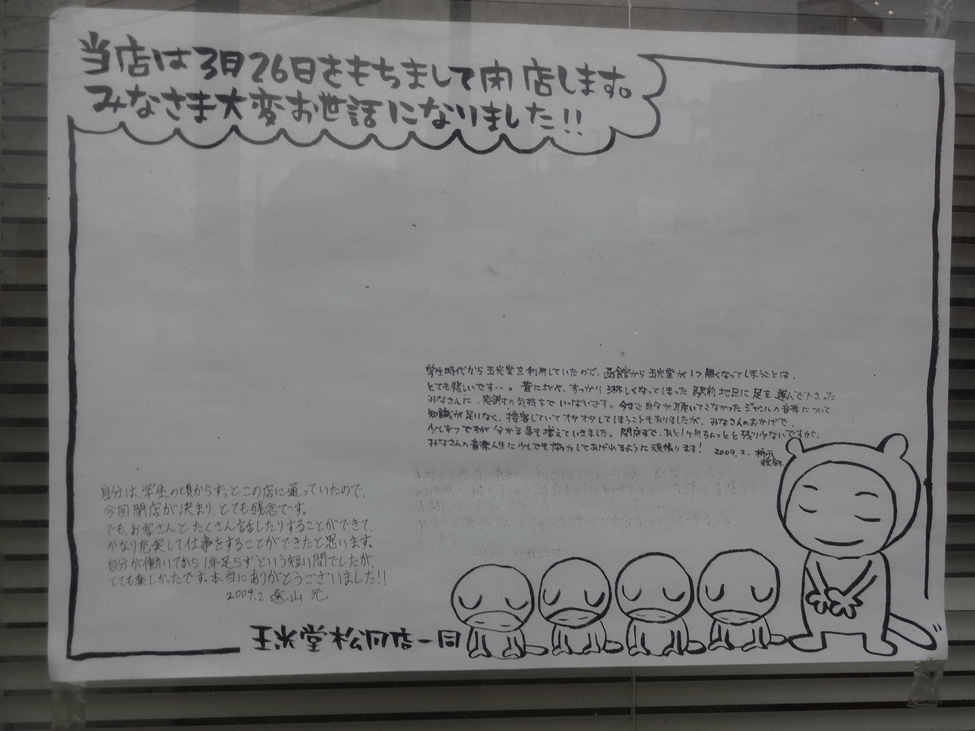 当店は3月26日をもちまして閉店します。
みなさま大変お世話になりました!!
学生時代から玉光堂を利用していたので、函館から玉光堂が1つ無くなってしまうことは、
とても悲しいです…。昔に比べ、すっかり淋しくなってしまった駅前地区に足を運んで下さった
みなさんに、感謝の気持ちでいっぱいです。今まで自分が聴いてこなかったジャンルの音楽について
知識が足りなく、接客していてオタオタしてしまうこともありましたが、みなさんのおかげで、
少しずつですが分かる事も増えていきました。閉店まで、あと1ヶ月ちょっとと残り少ないですが、
みなさんの音楽人生に少しでも協力してあげれるように頑張ります! 2009.2.
自分は、学生の頃からずっとこの店に通っていたので、
今回閉店が決まり、とても残念です。
でも、お客さんとたくさん話したりすることができて、
かなり充実して仕事をすることができたと思います。
自分が働いてから1年足らずという短い間でしたが、
とても楽しかったです。本当にありがとうございました!!
2009.2 遠山 元
玉光堂松風店一同